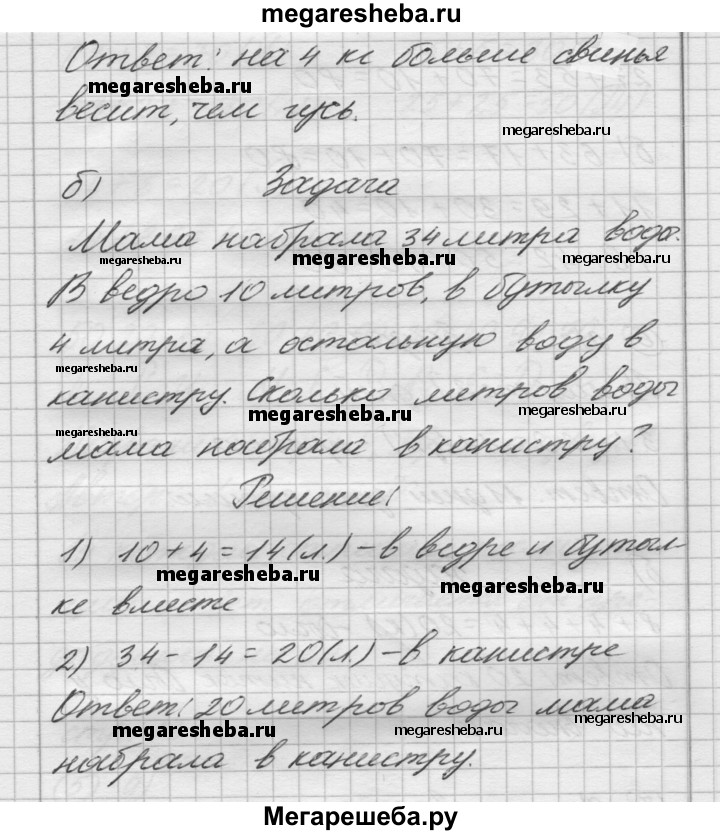 megaresheba.ru
Ответ: на 4 кг больше свинья
megaresheba.ru
весит, чем гусь.
megaresheba.ru
б) Задача
Мама набрала 34 литра воды.
megaresheba.ru megaresheba.ru megaresheba.ru
В ведро 10 литров, в бутылку
4 литра, а остальную воду в
megaresheba.ru
канистру. Сколько литров воды
megaresheba.ru megaresheba.ru
megaresheba.ru
мама набрала в канистру?
Решение:
1) 10 + 4 = 14 (л.) – в ведре и бутыл-
megaresheba.ru megaresheba.ru
ке вместе
2) 34 - 14 = 20 (л.) – в канистре
Ответ: 20 литров воды мама
megaresheba.ru megaresheba.ru megaresheba.ru
набрала в канистру.
Мегарешеба.ру